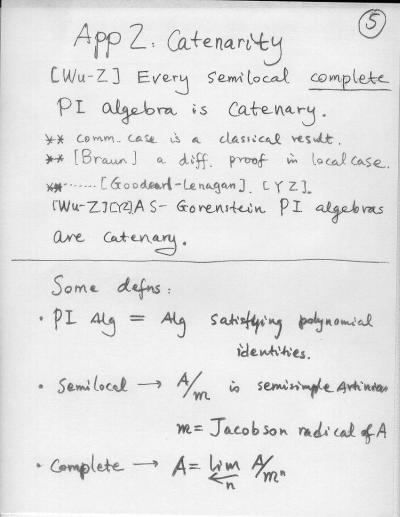 5
App 2: Catenarity
[Wu-Z] Every semilocal complete
PI algebra is catenary.
** comm. case is a classical result.
** [Braun] a diff. proof in local case.
**...... [Goodearl-Lenagan]. [YZ].
[Wu-Z][YZ] AS-Gorenstein PI algebras
are catenary.
Some defns:
• PI Alg = Alg satisfying polynomial
identities.
• Semilocal → A/m is semisimple Artinian
m = Jacobson radical of A
• Complete → A = lim← n A/mⁿ